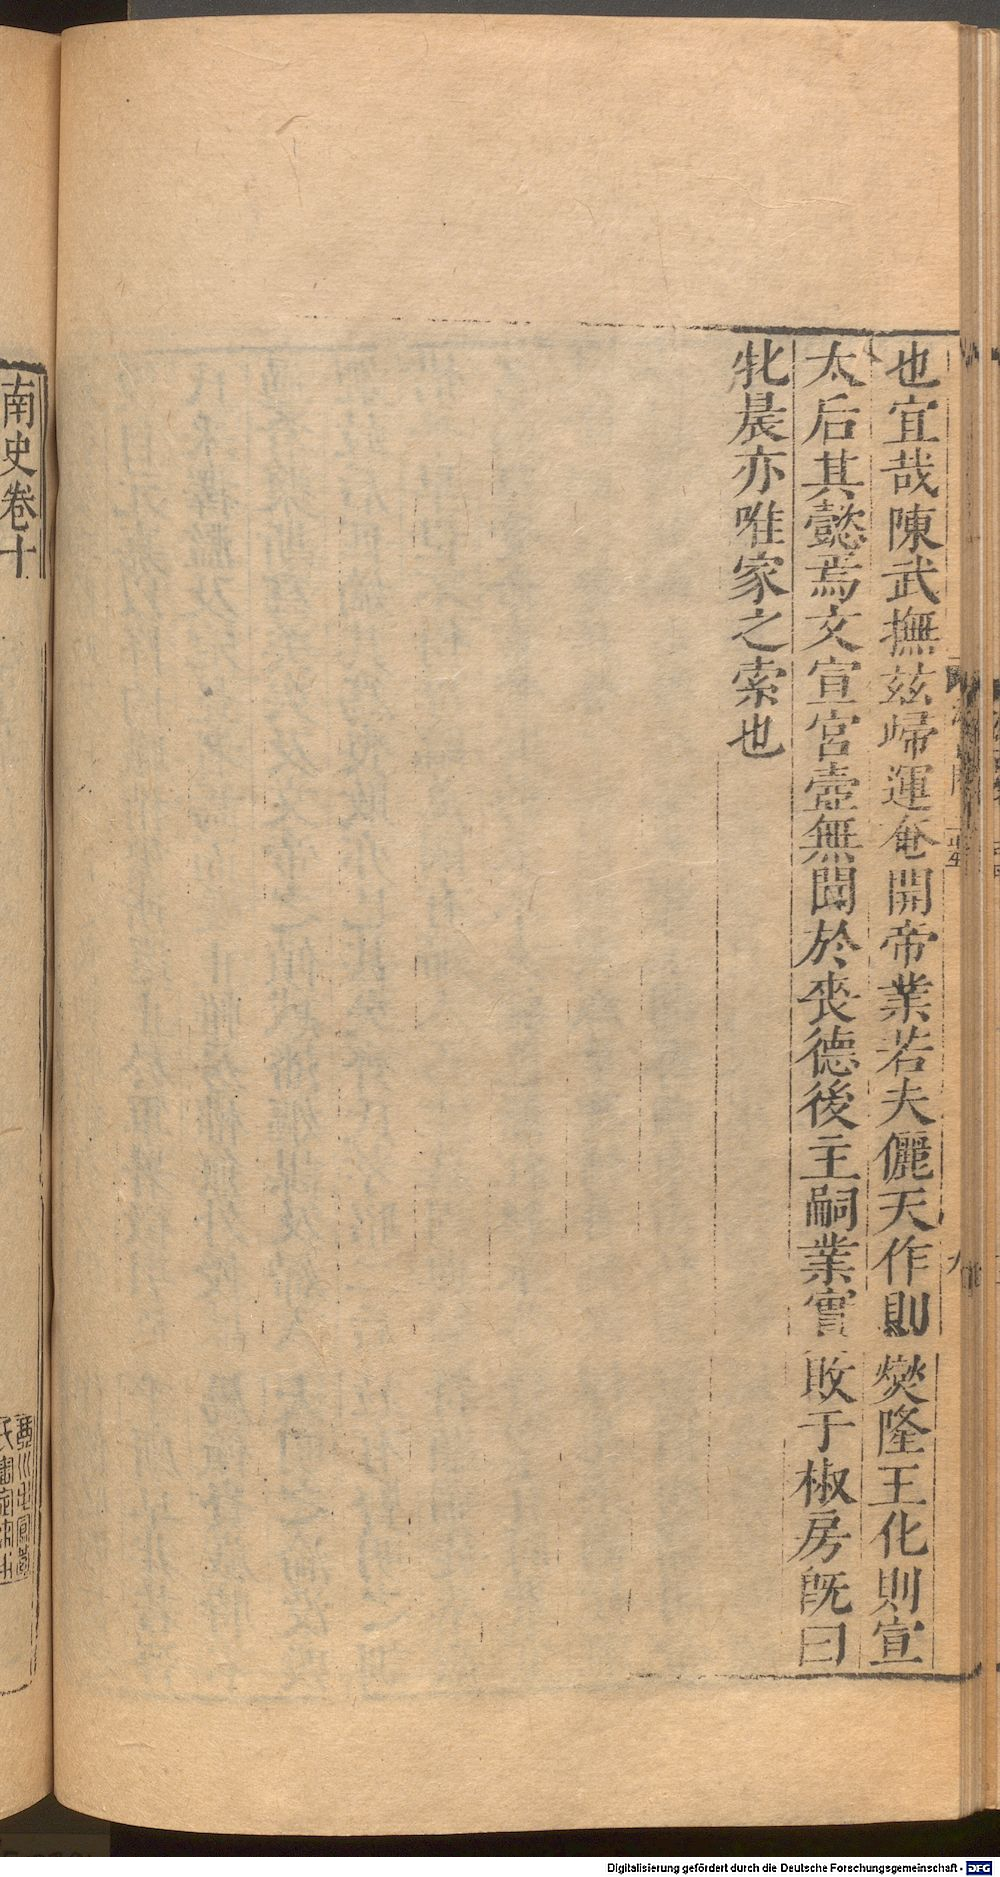 也宜哉陳武撫茲歸運奄開帝業若夫儷天作則爕隆王化則宣
太后其懿焉文宣宮壼無聞於喪德後主嗣業實敗于椒房旣曰
牝晨亦唯家之索也
南史卷十
Digitalisierung gefördert durch die Deutsche Forschungsgemeinschaft - DFG